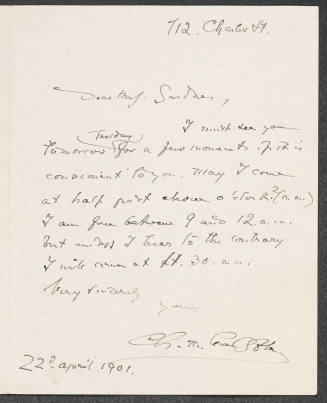 712. Charles St.
Dear Mrs. Gardner,
I must see you
Tuesday
tomorrow for a few moments if it is
convenient to you. May I come
at half past eleven o'clock? (a.m.)
I am free between 9 and 12 a.m.
but unless I hear to the contrary
I will come at 11. 30. a.m.
Very sincerely
yours
22d. april 1901.